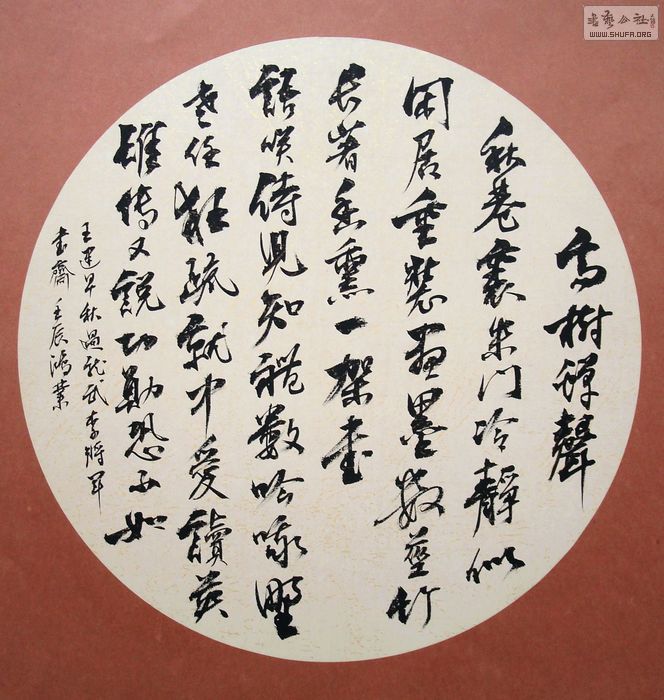 高樹蟬聲
秋巷裏朱門冷靜似
閑居重裝画墨數莖竹
長著香熏一架書
語咲侍兒知禮數吟哦野
老任狂疏就中愛讀英
雄傳又說功勳恐不如
王建早秋過龍武李將軍
書齋 壬辰鴻業
書藝公社
WWW.SHUFA.ORG